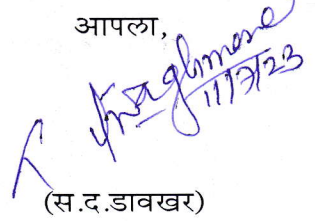 आपला,
11/7/23
(स.द.डावखर)